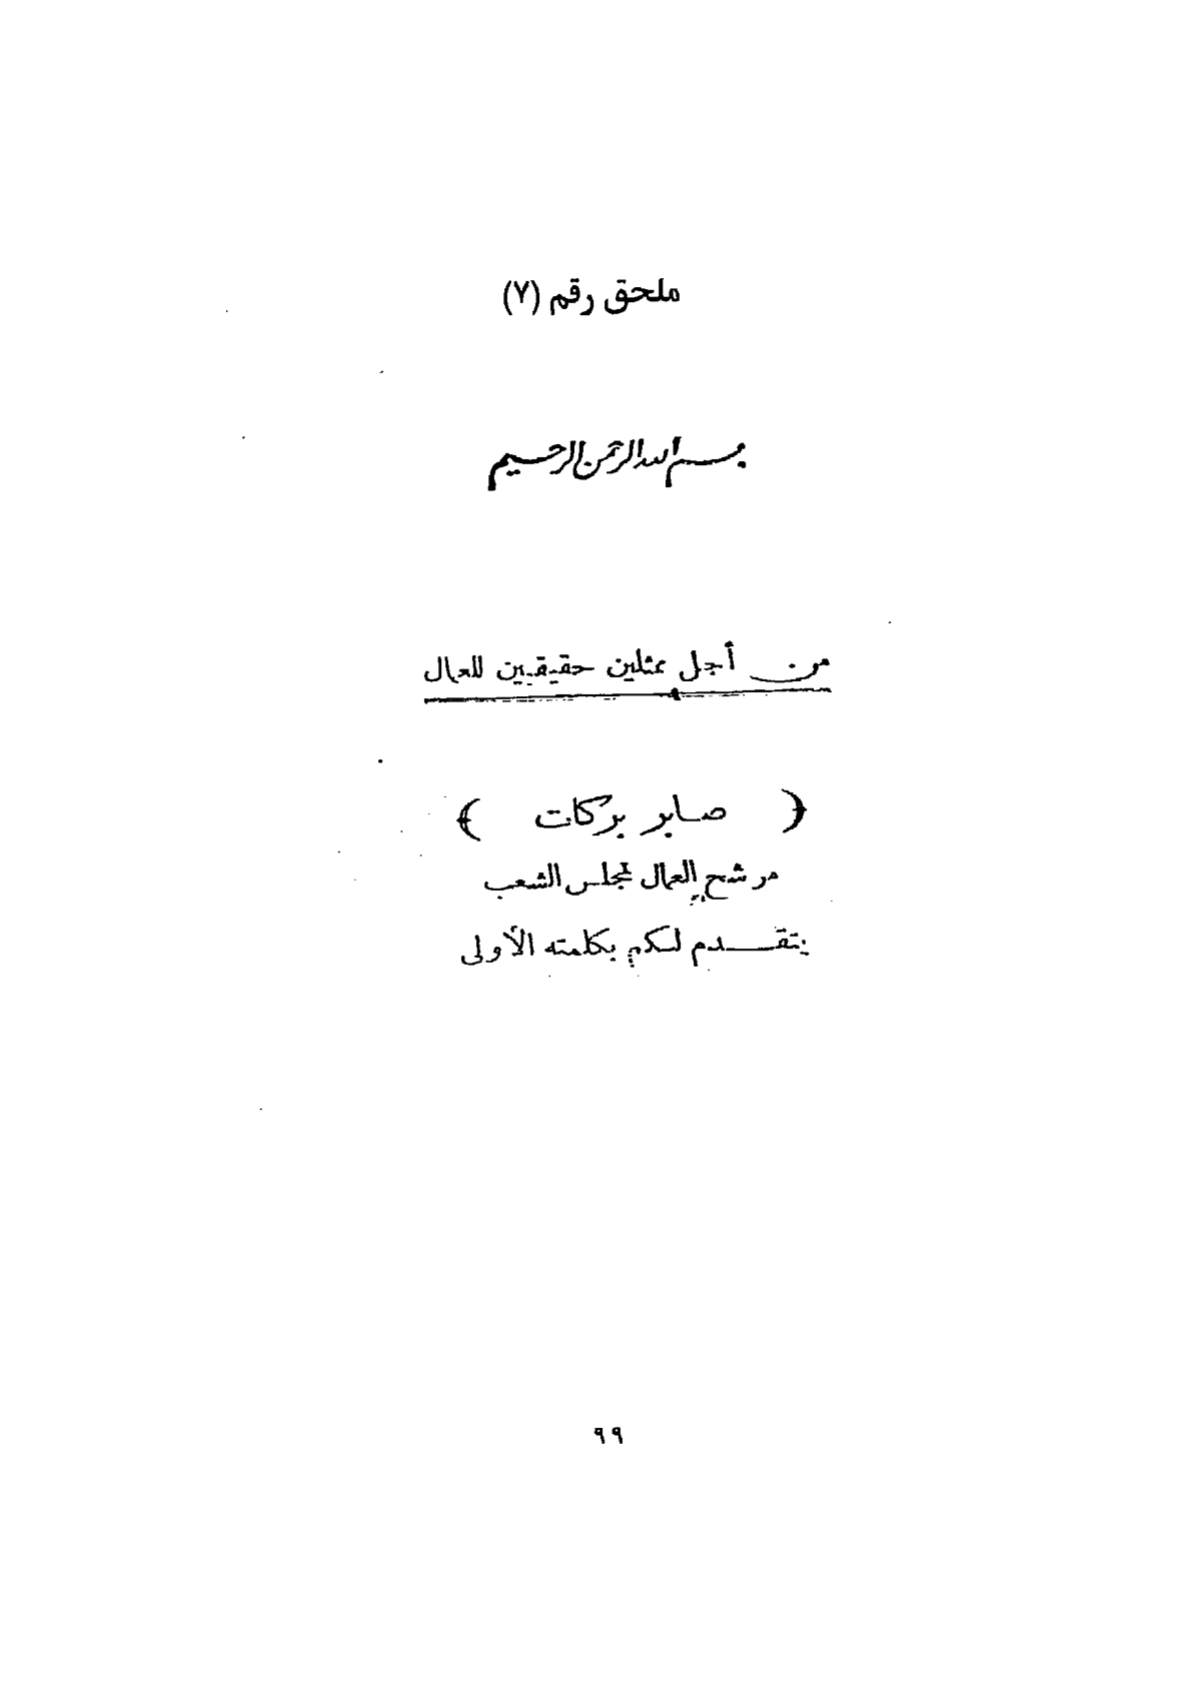 ملحق رقم (٧)
بسم الله الرحمن الرحيم
من أجل ممثلين حقيقيين للعمال
( صابر بركات )
مرشح العمال لمجلس الشعب
يتقدم لكم بكلمته الأولى
٩٩